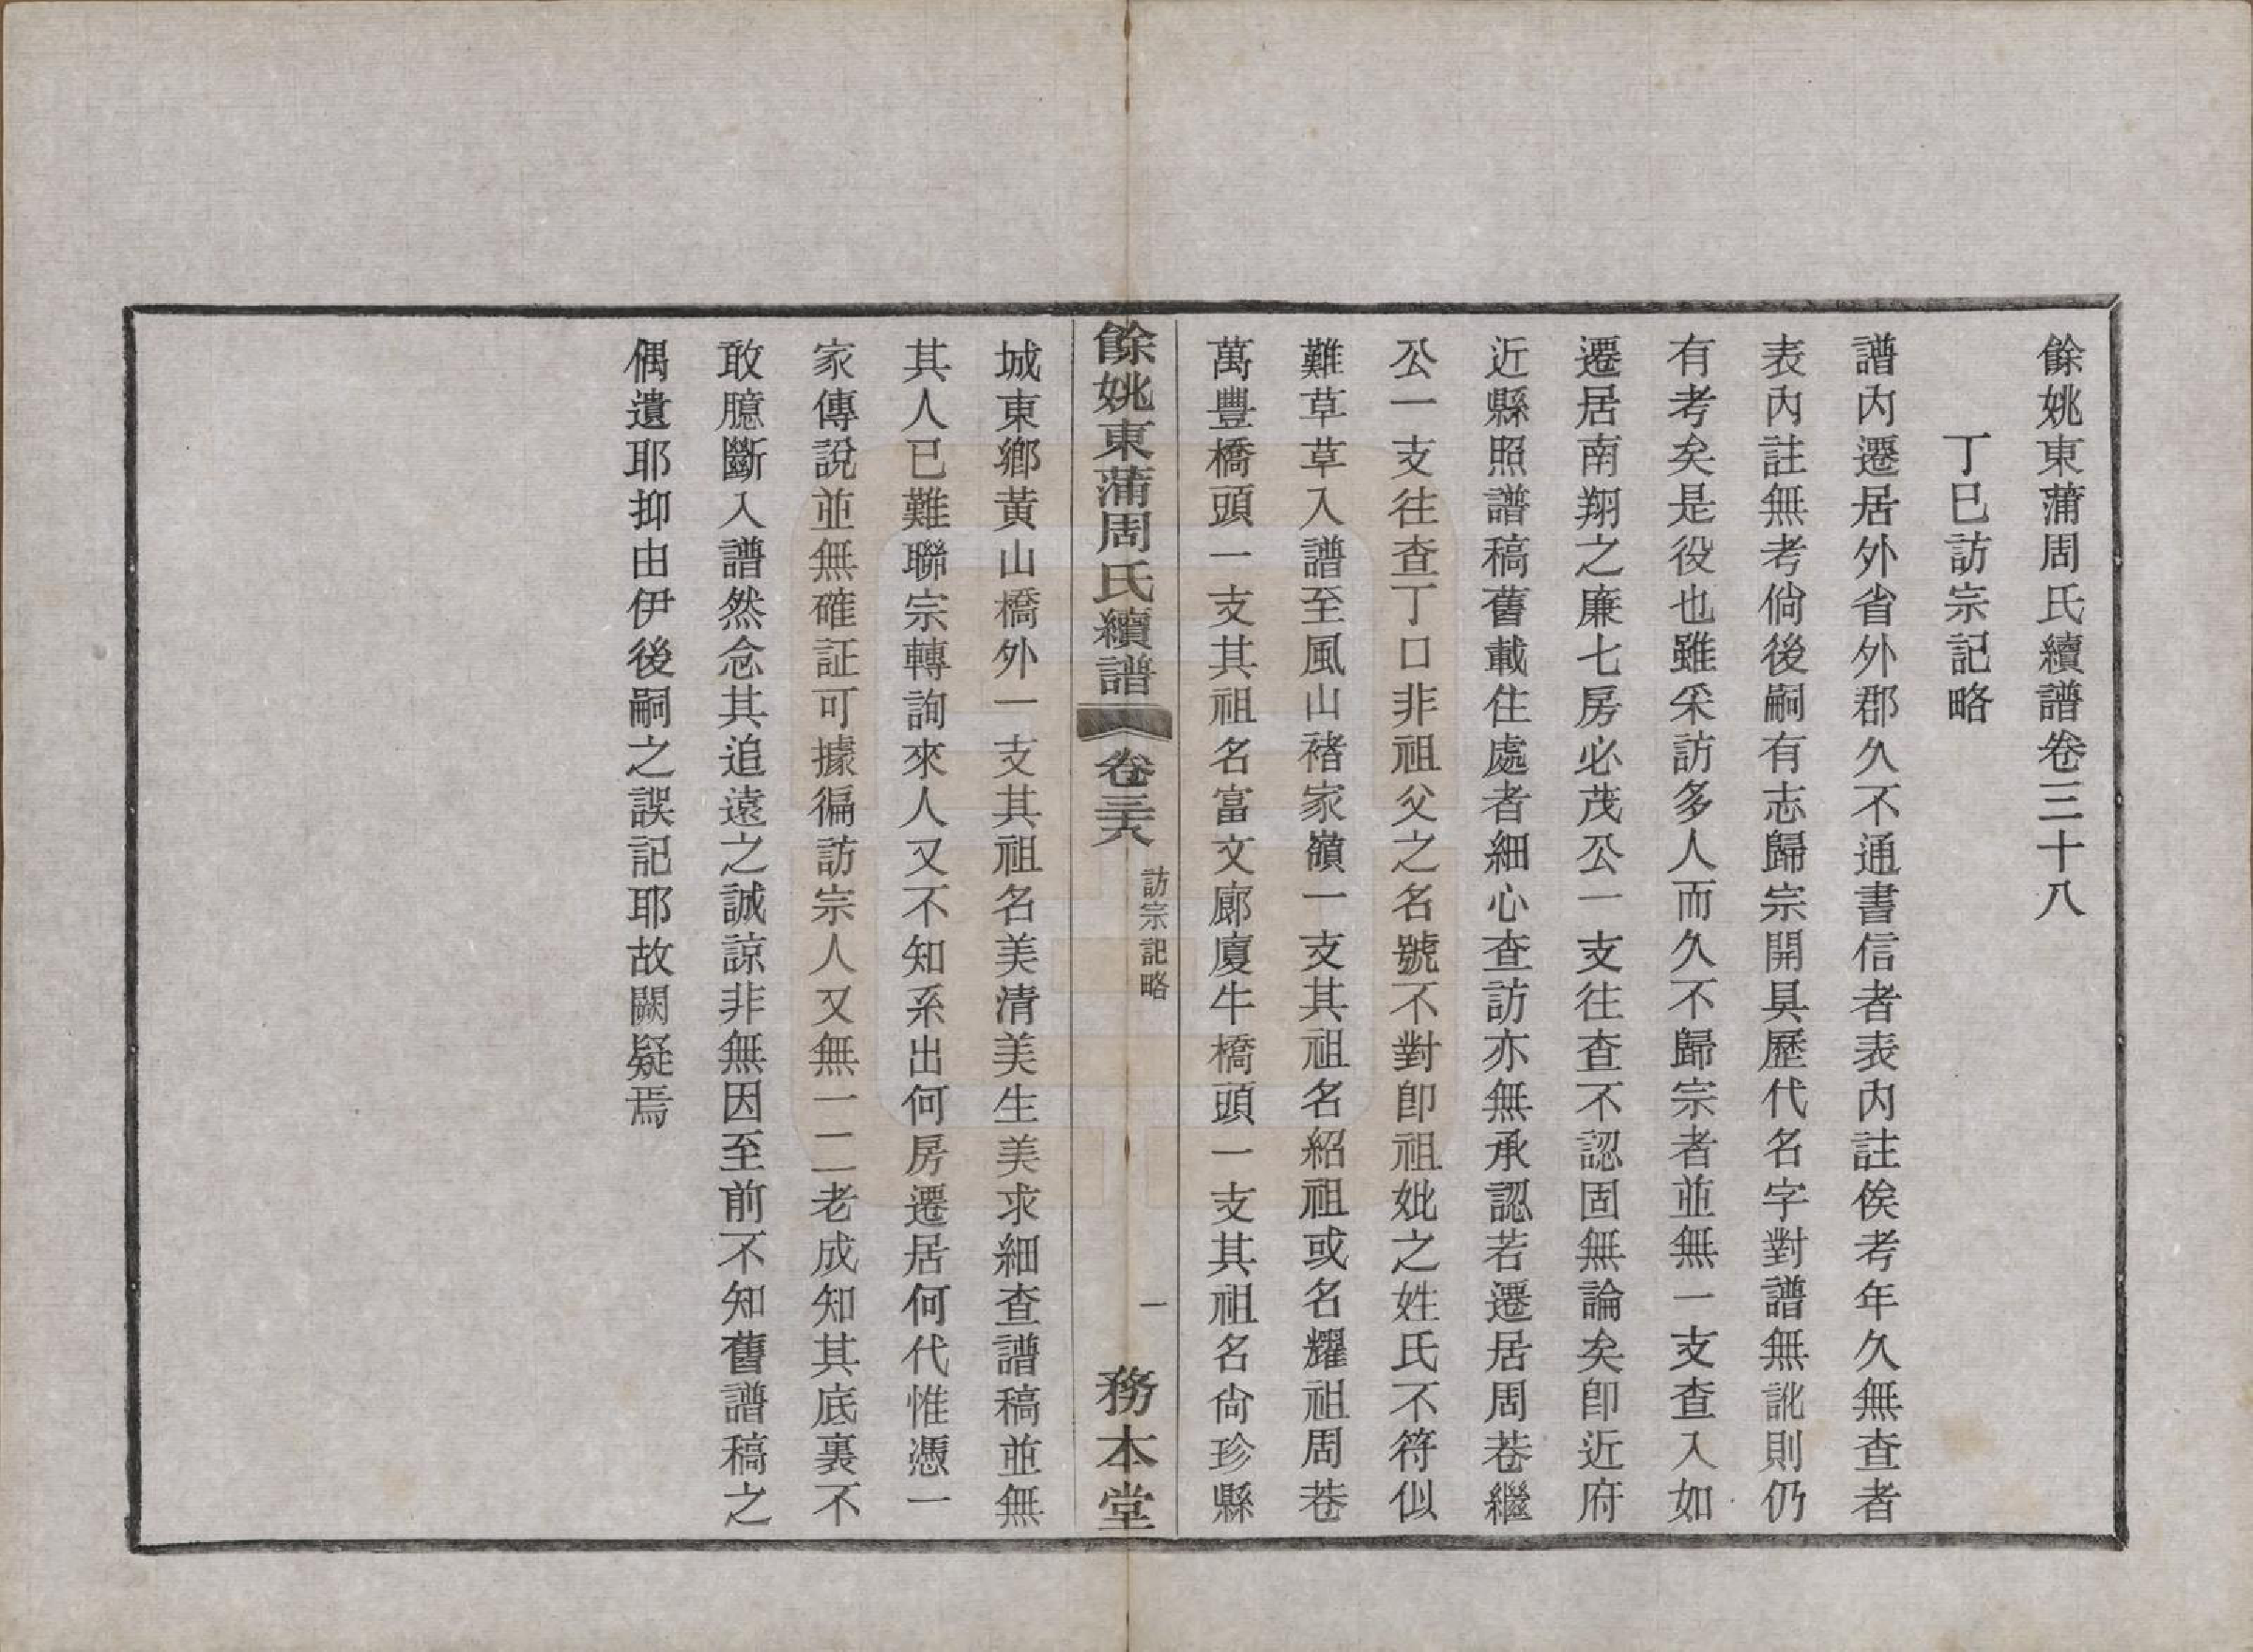 餘姚東蒲周氏續譜卷三十八
丁巳訪宗記略
譜內遷居外省外郡久不通書信者表內註俟考年久無查者
表內註無考倘後嗣有志歸宗開具歷代名字對譜無訛則仍
有考矣是役也雖采訪多人而久不歸宗者並無一支查入如
遷居南翔之廉七房必茂公一支往查不認固無論矣卽近府
近縣照譜稿舊載住處者細心查訪亦無承認若遷居周巷繼
公一支往查丁口非祖父之名號不對卽祖妣之姓氏不符似
難草草入譜至風山禇家嶺一支其祖名紹祖或名耀祖周巷
萬豐橋頭一支其祖名富文廊廈牛橋頭一支其祖名尙珍縣
餘姚東蒲周氏續譜 卷三十八 訪宗記略 一 務本堂
城東鄉黃山橋外一支其祖名美清美生美求細查譜稿並無
其人已難聯宗轉詢來人又不知系出何房遷居何代惟憑一
家傳說並無確証可據徧訪宗人又無一二老成知其底裏不
敢臆斷入譜然念其追遠之誠諒非無因至前不知舊譜稿之
偶遺耶抑由伊後嗣之誤記耶故闕疑焉